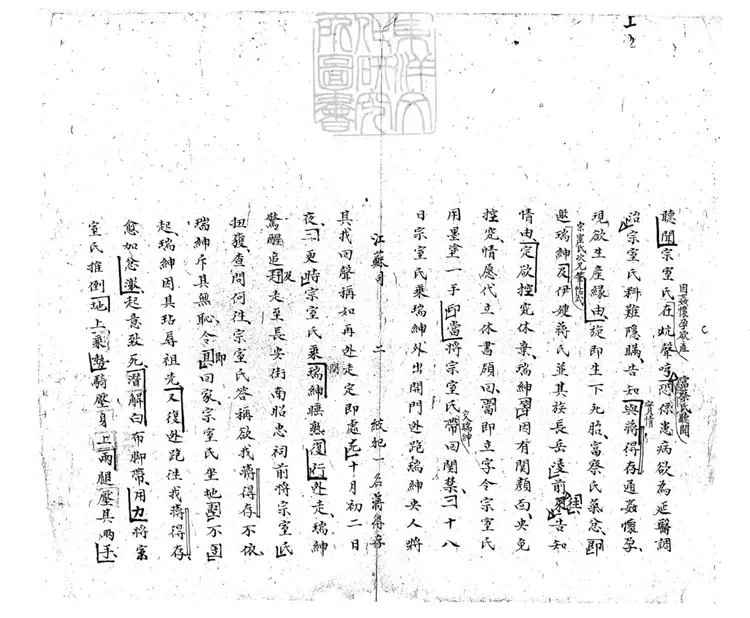 東洋文化研究所圖書
因姦懷孕欲產
富察氏聽聞
聽聞宗室氏在炕聲喊恐係患病欲為延醫調
實情
治宗室氏料難隱瞞告知與蔣得存通姦懷孕
現欲生產緣由旋即生下死胎富察氏氣忿即
宗室氏次兄筆帖式
邀瑞紳及伊嫂蔣氏並其族長岳凌前來告知
情由定欲控究休棄瑞紳因有関顏面央免
控究情愿代立休書領回當即立字令宗室氏
交瑞紳
用墨塗一手印當將宗室氏帶回関禁二十八
日宗室氏乘瑞紳外出開門外跑瑞紳央人將
江蘇司 二 絞犯一名蔣得存
其找回聲稱如再外走定即處死十月初二日
夜二更時宗室氏乘瑞紳睡熟復行外走瑞紳
驚醒追赶走至長安街南昭忠祠前將宗室氏
扭獲查問何往宗室氏答稱欲找蔣得存不依
瑞紳斥其無恥令即其回家宗室氏坐地不
起瑞紳因其玷辱祖先又復外跑往找蔣得存
愈加忿激起意致死潛解白布脚帶用力將宗
室氏推倒地上乘勢騎壓身上兩腿壓其兩手